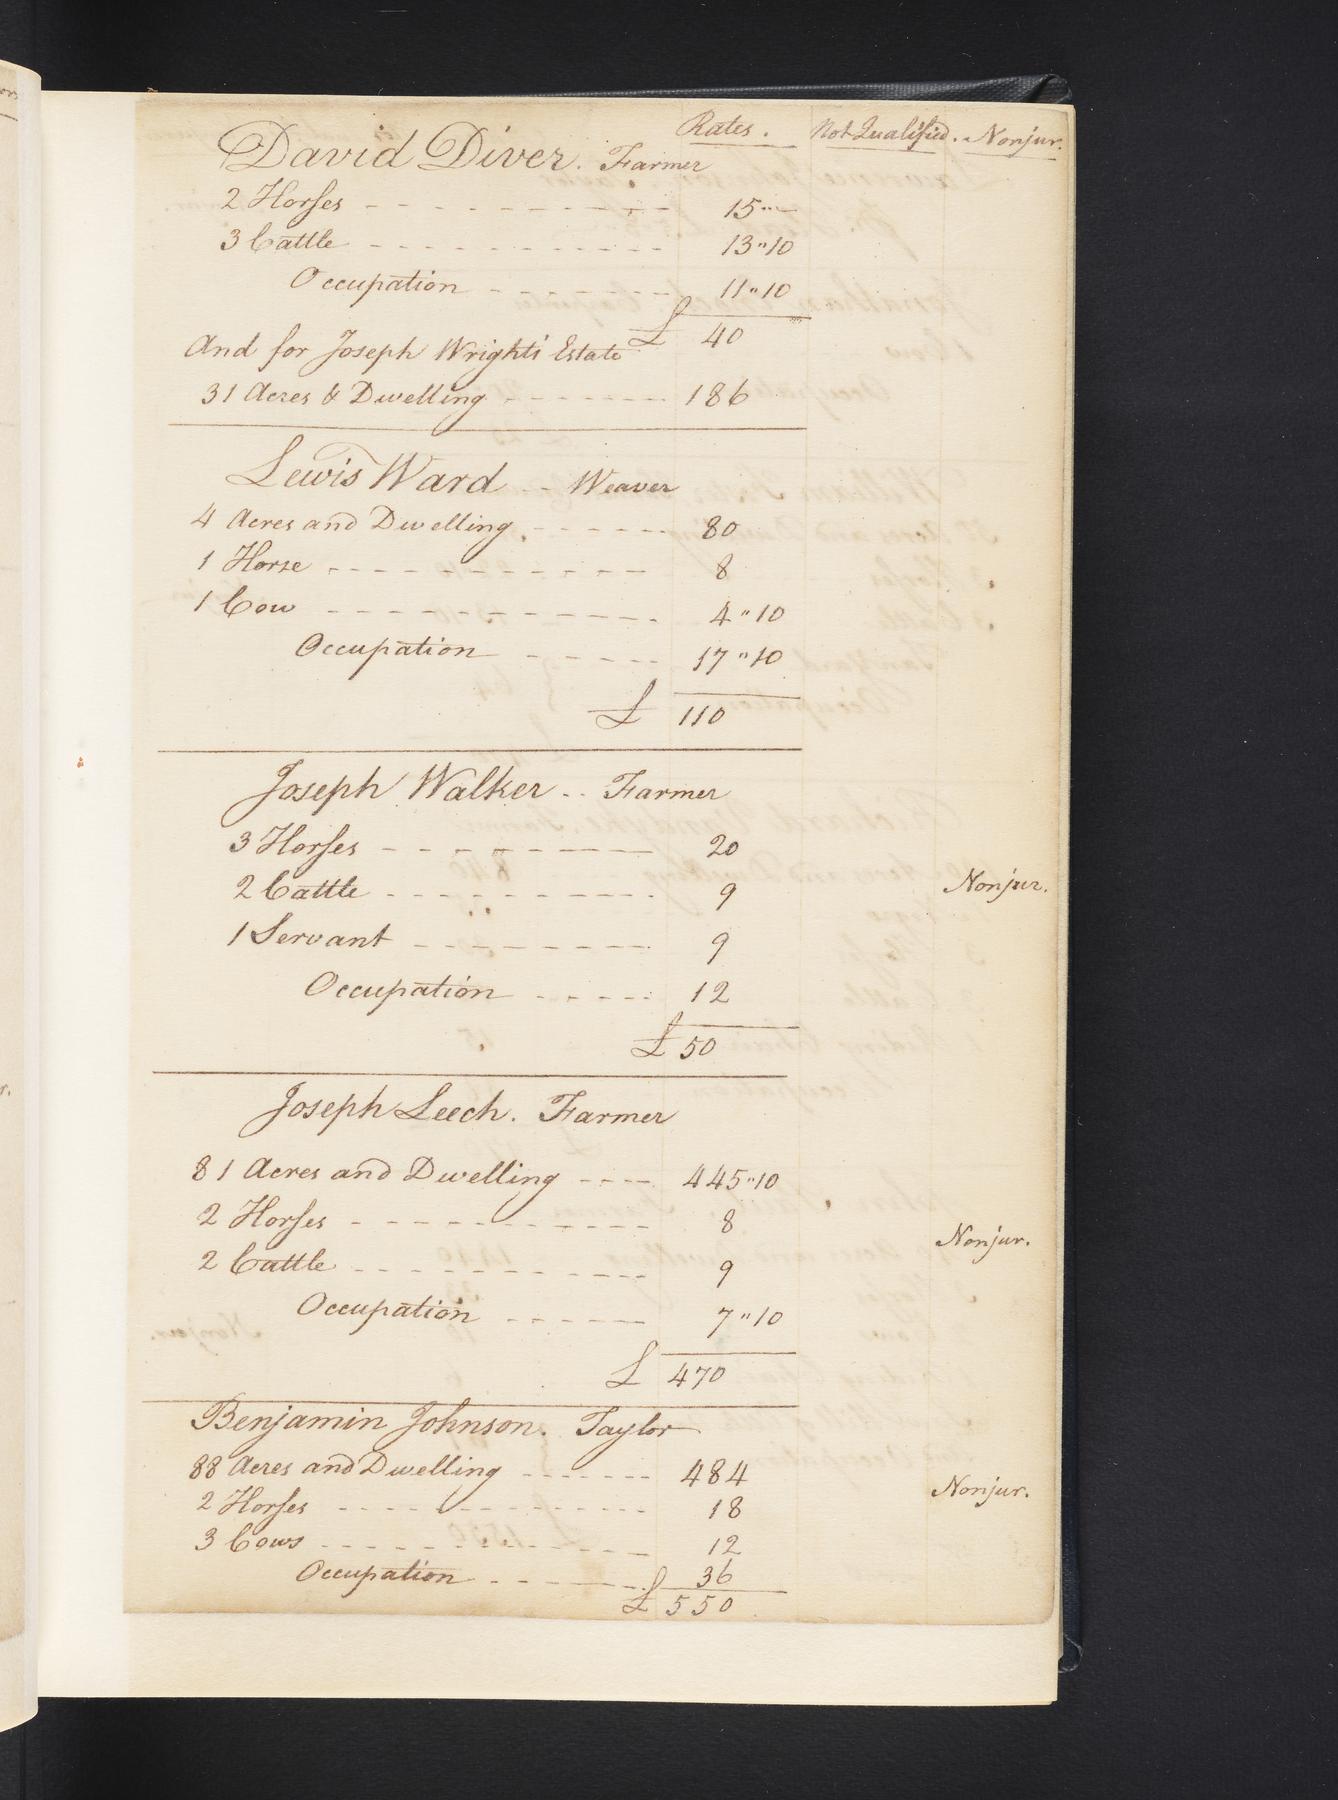 Rates. Not Qualified. - Nonjur.
David Diver. Farmer
2 Horses - - - - - - - - - 15"—
3 Cattle - - - - - - - - - 13"10
Occupation - - - - - - 11"10
£ 40
And for Joseph Wright's Estate
31 Acres & Dwelling - - - - - - 186
Lewis Ward - - Weaver
4 Acres and Dwelling - - - - - 80
1 Horse - - - - - - - - - 8
1 Cow - - - - - - - - - 4"10
Occupation - - - - - 17"10
£ 110
Joseph Walker - - Farmer
3 Horses - - - - - - - - 20
2 Cattle - - - - - - - - 9 Nonjur.
1 Servant - - - - - - - 9
Occupation - - - - - 12
£ 50
Joseph Leech. Farmer
81 Acres and Dwelling - - - - 445"10
2 Horses - - - - - - - - 8 Nonjur.
2 Cattle - - - - - - - - 9
Occupation - - - - - - 7"10
£ 470
Benjamin Johnson. Taylor
88 Acres and Dwelling - - - - - - 484
2 Horses - - - - - - - - - 18 Nonjur.
3 Cows - - - - - - - - - 12
Occupation - - - - - - 36
£ 550